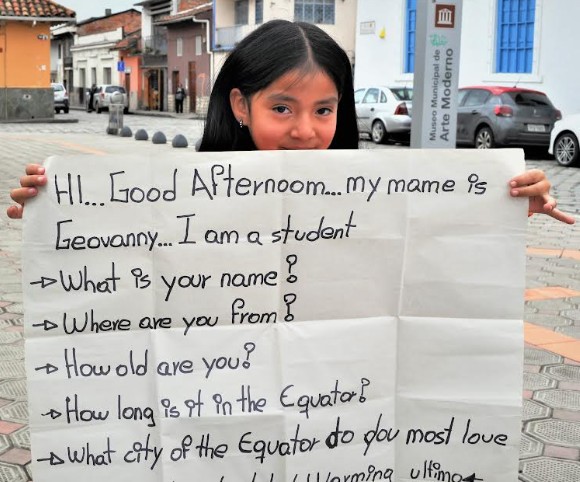 HI... Good Afternoom... my mame is
Geovanny... I am a student
→ What is your name?
→ Where are you from?
→ How old are you?
→ How long is it in the Equator?
→ What city of the Equator do you most love
Warming
Museo Municipal de
Arte Moderno